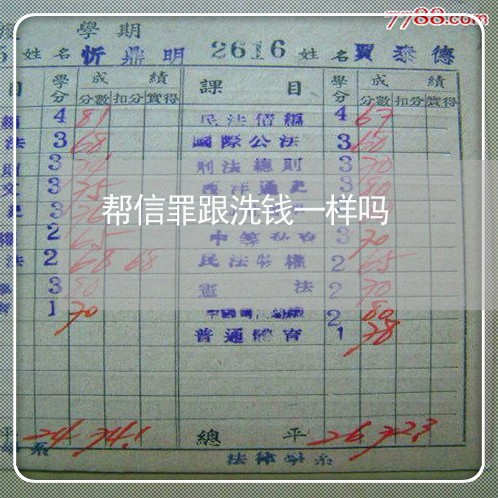 7788.com
學期
5 姓名 忻鼎明 2616 姓名 賈泰德
目 學分 成績 課目 學分 成績
分數 扣分 實得 分數 扣分 實得
4 81 民法債編 4 67
法 3 68 國際公法 3 60
3 刑法總則 3 70
文 3 75 西洋通史 3 80
3
帮信罪跟洗钱一样吗
權 2 65 3 70
法 2 68 68 民法物權 2 65
3 80 憲法 2 70
1 70 2 80
普通體育 1 78
平 24 74.1 總平 26 72.3
系 法律學系